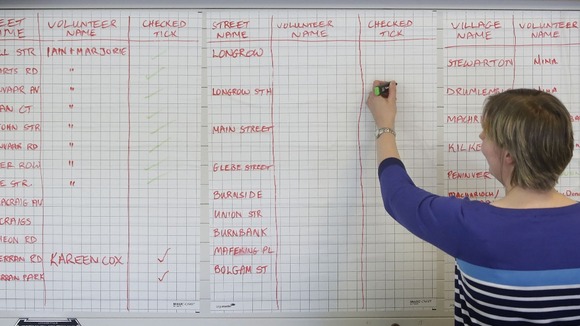 EET NAME VOLUNTEER NAME CHECKED TICK
LL STR IAIN + MARJORIE
ARTS RD "
VAAR AV "
AN CT "
OHN STR "
VAAR RD "
ER ROW "
E STR. "
ACRAIG AV
CRAIGS
HEON RD
ERRAN RD KAREEN COX ✓
RRAN PARK ✓
STREET NAME VOLUNTEER NAME CHECKED TICK
LONGROW
LONGROW STH
MAIN STREET
GLEBE STREET
BURNSIDE
UNION STR
BURNBANK
MAFEKING PL
BOLGAM ST
VILLAGE NAME VOLUNTEER NAME
STEWARTON NINA
DRUMLEM
MACHR
KILKE
PENINVER
MACHRIOCH/